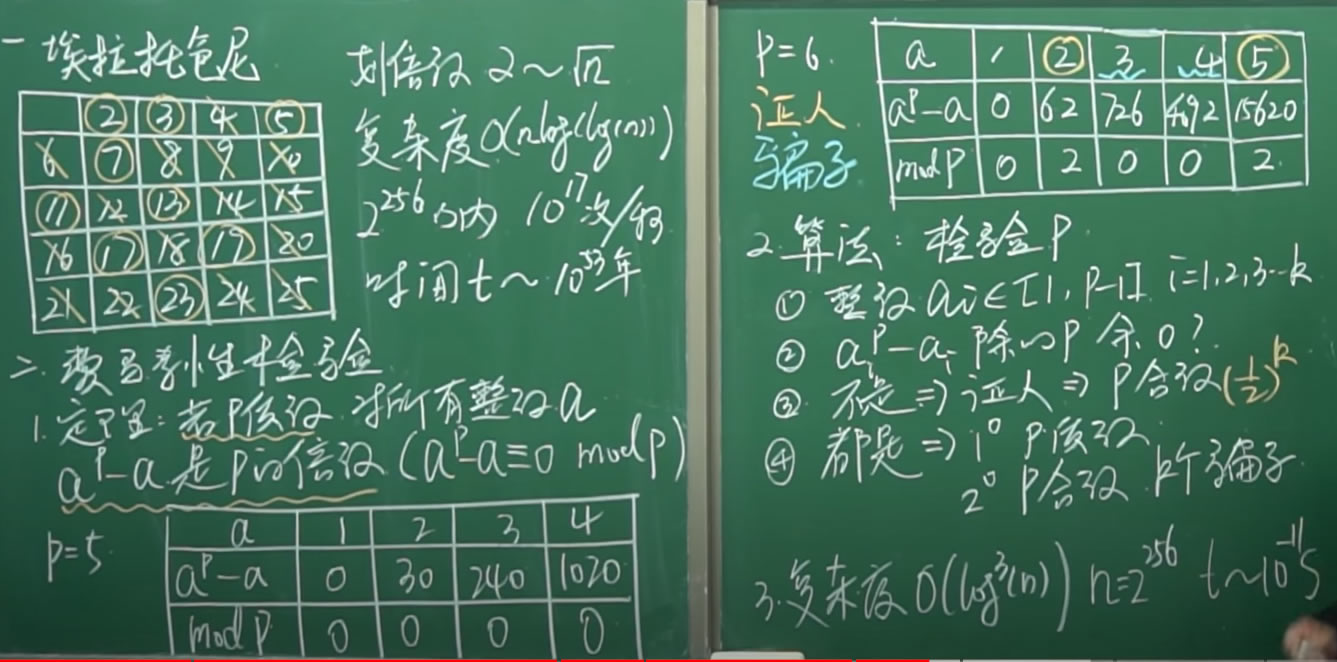 一 埃拉托色尼
② ③ 4 ⑤
6 ⑦ 8 9 10
⑪ 12 ⑬ 14 15
16 ⑰ 18 ⑲ 20
21 22 ㉓ 24 25
划倍数 2~√n
复杂度 O(nlog(log(n)))
2^256 以内 10^17次/秒
时间 t~10^53年
二. 费马素性检验
1. 定理: 若P质数 对所有整数a
a^p-a 是p的倍数 (a^p-a≡0 mod p)
p=5
a 1 2 3 4
a^p-a 0 30 240 1020
mod p 0 0 0 0
p=6.
证人
骗子
a 1 ② 3 4 ⑤
a^p-a 0 62 726 4092 15620
mod p 0 2 0 0 2
2. 算法: 检验P
① 整数 ai∈[1, P-1] i=1,2,3…k
② ai^p-ai 除以P 余0?
③ 不是 ⇒ 证人 ⇒ P合数 (1/2)^k
④ 都是 ⇒ 1° P质数
2° P合数 k个骗子
3. 复杂度 O(log³(n)) n=2^256 t~10^-11 s